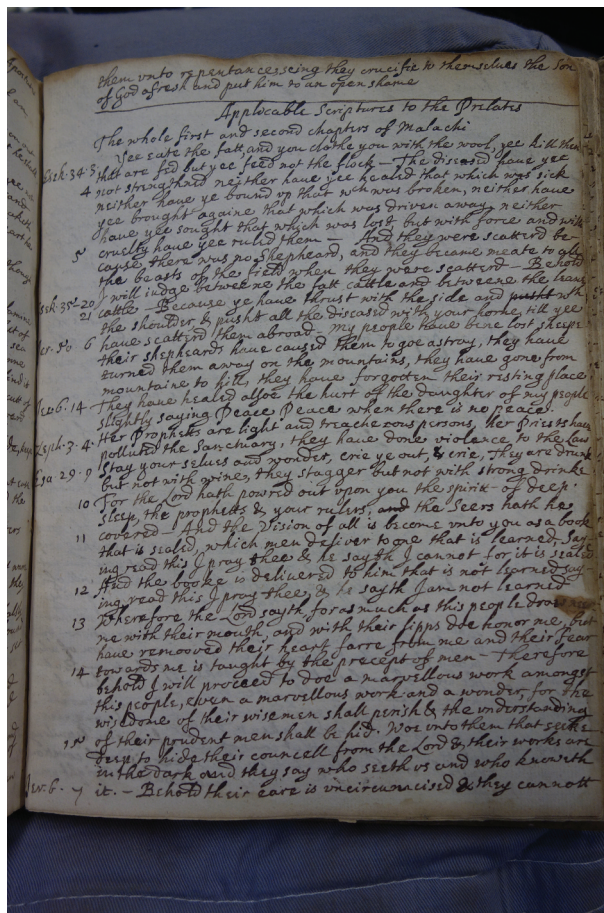 them vnto repentance seeing they crucifie to themselues the Son
of God afresh and put him to an open shame
Applicable Scriptures to the Prelates
The whole first and second chapters of Malachi
Yee eate the fatt and you clothe you with the wool, yee kill them
Esek: 34. 3 that are fed but yee feed not the flock – The diseasd have yee
4 not strengthned neither have yee healed that which was sick
neither have ye bound up that wch was broken, neither have
yee brought againe that which was driven away neither
have yee sought that which was lost, but with force and with
5 cruelty have yee ruled them – And they were scatterd be-
cause there was no shepheard, and they became meate to all
the beasts of the field when they were scatterd – Behold
I will judge betweene the fatt cattle and betweene the leane
21 cattle – Because ye have thrust with the side and wth
the shoulder & pusht all the diseased with your horns, till yee
6 have scatterd them abroad – My people have bene lost sheepe
their shepheards have caused them to goe astray, they have
turned them away on the mountains, they have gone from
mountaine to hill, they have forgotten their resting place
Jer: 6. 14 They have healed alsoe the hurt of the daughter of my people
slightly saying Peace Peace when there is no peace
Zeph: 3. 4. Her Prophets are light and treacherous persons, her Priests have
polluted the Sanctuary, they have done violence to the Law
Esa: 29. 9 Stay your selues and wonder, crie ye out, & crie, They are drunk
but not with wine, they stagger but not with strong drinke
10 For the Lord hath powred out vpon you the spirit of deep
sleep, the prophetts & your rulers, and the Seers hath he
11 covered – And the Vision of all is become vnto you as a book
that is sealed, which men deliver to one that is learned, Say-
ing read this I pray thee & he sayth I cannot for it is sealed
12 And the booke is delivered to him that is not learned say
ing, read this I pray thee, & he sayth I am not learned
13 Wherefore the Lord sayth for as much as this people draw
me with their mouth, and with their lipps doe honor me, but
have remooved their heart farre from me and their fear
14 towards me is taught by the precept of men – Therefore
behold I will proceed to doe a marvellous work amongst
this people, even a marvellous work and a wonder, for the
wisdome of their wisemen shall perish & the vnderstanding
15 of their prudent men shall be hid. Woe vnto them that seeke
deep to hide their councell from the Lord & their works are
in the dark and they say who seeth vs and who knoweth
Jer. 6. it. – Behold their eare is vncircumcised & they cannott